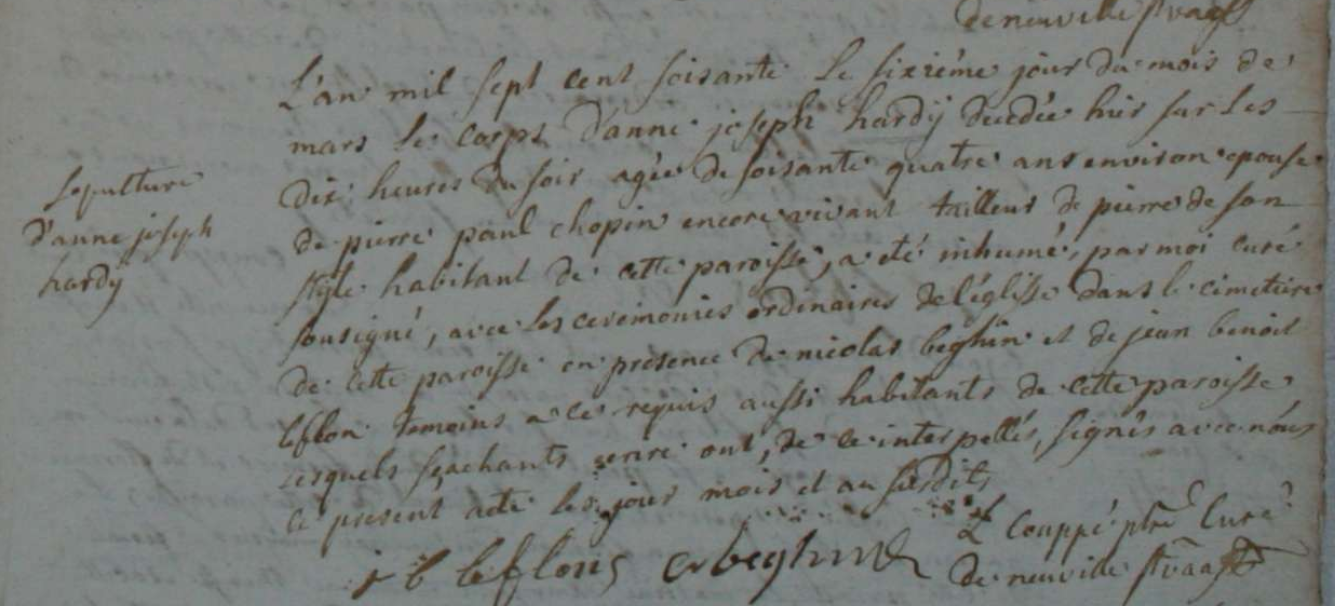 de neuville st vaast
L'an mil sept cent soisante le sixiéme jour du mois de
mars le corps d'anne joseph hardÿ decedée hier sur les
dix heures du soir agée de soisante quatre ans environ epouse
de pierre paul chopin encore vivant tailleur de pierre de son
style habitant de cette paroisse, a eté inhumé, par moi curé
sousigné, avec les ceremonies ordinaires de l'églisse dans le cimetiere
de cette paroisse en presence de nicolas beghin et de jean benoit
leflon temoins a ce requis aussi habitants de cette paroisse
lesquels sçachants ont, de ce interpellés, signés avec nous
ce present acte les jour mois et an susdits
sepulture
d'anne joseph
hardy
j b leflon beghin
L Couppé ptre Curé
de neuville st vaast